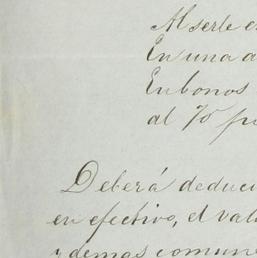 Al serle e
En una a
En bonos
al 70 p
Deberá deduci
en efectivo, el val
y demas comun